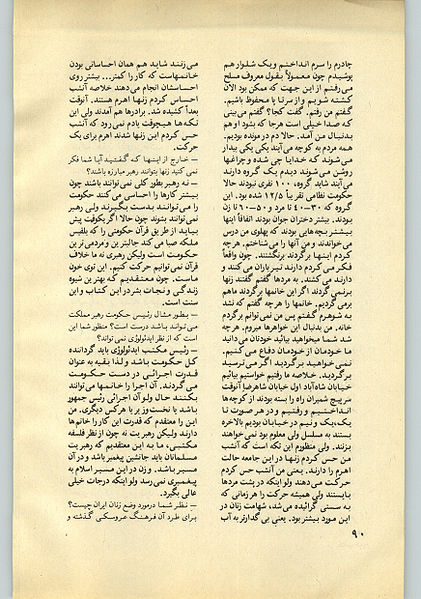 چادرم را سرم انداختم و یک شلوار هم
پوشیدم چون معمولاً بقول معروف مسلح
می‌رفتم از این جهت که ممکن بود الان
کشته شویم و از سر تا پا محفوظ باشیم.
گفتم من رفتم. گفت کجا؟ گفتم می‌بینی
که صدا خیلی است هرجا که بشود او هم
بدنبال من آمد. حالا دم در مونده بودیم.
همه مردم به کوچه می‌آیند یکی یکی بیدار
می‌شوند که خدایا چی شده و چراغها
روشن می‌شوند دیدم یک گروه دارند
می‌آیند شاید گروه، ۱۰۰ نفری نبودند حالا
حکومت نظامی تقریباً ۱۲/۵ شده بود. این
گروه که ۳۰-۴۰ تا مرد و ۵۰-۶۰ تا زن
بودند. بیشتر دختران جوان بودند اتفاقاً اینها
بیشتر بچه‌هایی بودند که پهلوی من درس
می‌خواندند و من آنها را می‌شناختم. هرچه
کردم اینها برگردند برنگشتند. چون واقعاً
فکر می‌کردم دارند تیرباران می‌کنند و
دارند می‌کشند. به مردها گفتم گفتند زنها
برنمی‌گردند اگر این خانمها برگردند ماهم
برمی‌گردیم. خانمها را هرچه گفتم که نشد
به شوهرم گفتم پس من نمی‌توانم برگردم
خانه. من بدنبال این خواهرها میروم. هرچه
شد شما میخواهید بیائید خودتان می‌دانید
ما خودمان از خودمان دفاع می‌کنیم.
نمی‌خواهید برگردید اگر می‌ترسید
برگردید. خلاصه ما رفتیم خواستیم بیائیم
خیابان شاه‌آباد اول خیابان شاهرضا آنوقت
سر پیچ شمیران راه را بسته بودند از کوچه‌ها
انداختیم و رفتیم و در هر صورت تا
یک، یک و نیم در خیابان بودیم بالاخره
بستند به مسلسل ولی معلوم بود نمی‌خواهند
بزنند. ولی منظورم این نکته است که آنشب
من حس کردم زنها در این جامعه حالت
اهرم را دارند. یعنی من آنشب حس کردم
حرکت می‌دهند ولو اینکه در پشت مردها
بایستند ولی همیشه حرکت را هر زمانی که
به سستی گرائیده می‌شد، شهامت زنان در
این مورد بیشتر بود. یعنی بی‌گدارتر به آب
می‌زنند شاید هم همان احساساتی بودن
خانمهاست که کار را کمتر... بیشتر روی
احساسشان انجام می‌دهند خلاصه آنشب
احساس کردم زنها اهرم هستند. آنوقت
بعداً کشیده شد. برادرها هم آمدند ولی این
نکته‌ها هیچوقت یادم نمی‌رود که آنشب
حس کردم این زنها شدند اهرم برای یک
حرکت.
— خارج از اینها که گفتید آیا شما فکر
نمی‌کنید زنها بتوانند رهبر مبارزه باشند؟
— نه رهبر بطور کلی نمی‌توانند باشند چون
بیشتر کارها را احساسی می‌کنند حکومت
را می‌توانند بدست بگیرند ولی رهبر
نمی‌توانند بشوند چون حالا اگر بوقت پیش
بیاید از طریق قرآن حکومتی را که بلقیس
ملکه صبا می‌کند جالبترین و مردمی‌ترین
حکومت است ولیکن رهبری نه ما خلاف
قرآن نمی‌توانیم حرکت کنیم. این توی خون
ماست. چون معتقدیم که بهترین شیوه
زندگی و نجات بشر در این کتاب و این
سنت است.
— بطور مثال رئیس حکومت رهبر مملکت
می‌تواند باشد درست است؟ منظور شما این
است که از نظر ایدئولوژی نمی‌تواند؟
— رئیس مکتب ایدئولوژی باید گرداننده
کل حکومت باشد ولذا بقیه به عنوان
قدرت اجرائی در دست حکومت
می‌گردند. آن اجرا را خانمها می‌توانند
بکنند حال ولو آن اجرائی رئیس جمهور
باشد یا نخست وزیر یا هرکس دیگری. من
این را معتقدم که قدرت این کار را خانم‌ها
دارند ولیکن رهبریت نه چون از نظر فلسفه
مکتبی، ما به این معتقدیم که رهبریت
مسلمانان باید جانشین پیغمبر باشد و در آن
مسیر باشد. و زن در این مسیر اسلام به
پیغمبری نمی‌رسد ولو اینکه درجات خیلی
عالی بگیرد.
— نظر شما درمورد وضع زنان ایران چیست؟
برای طرد آن فرهنگ عروسکی گذشته و
۹۰